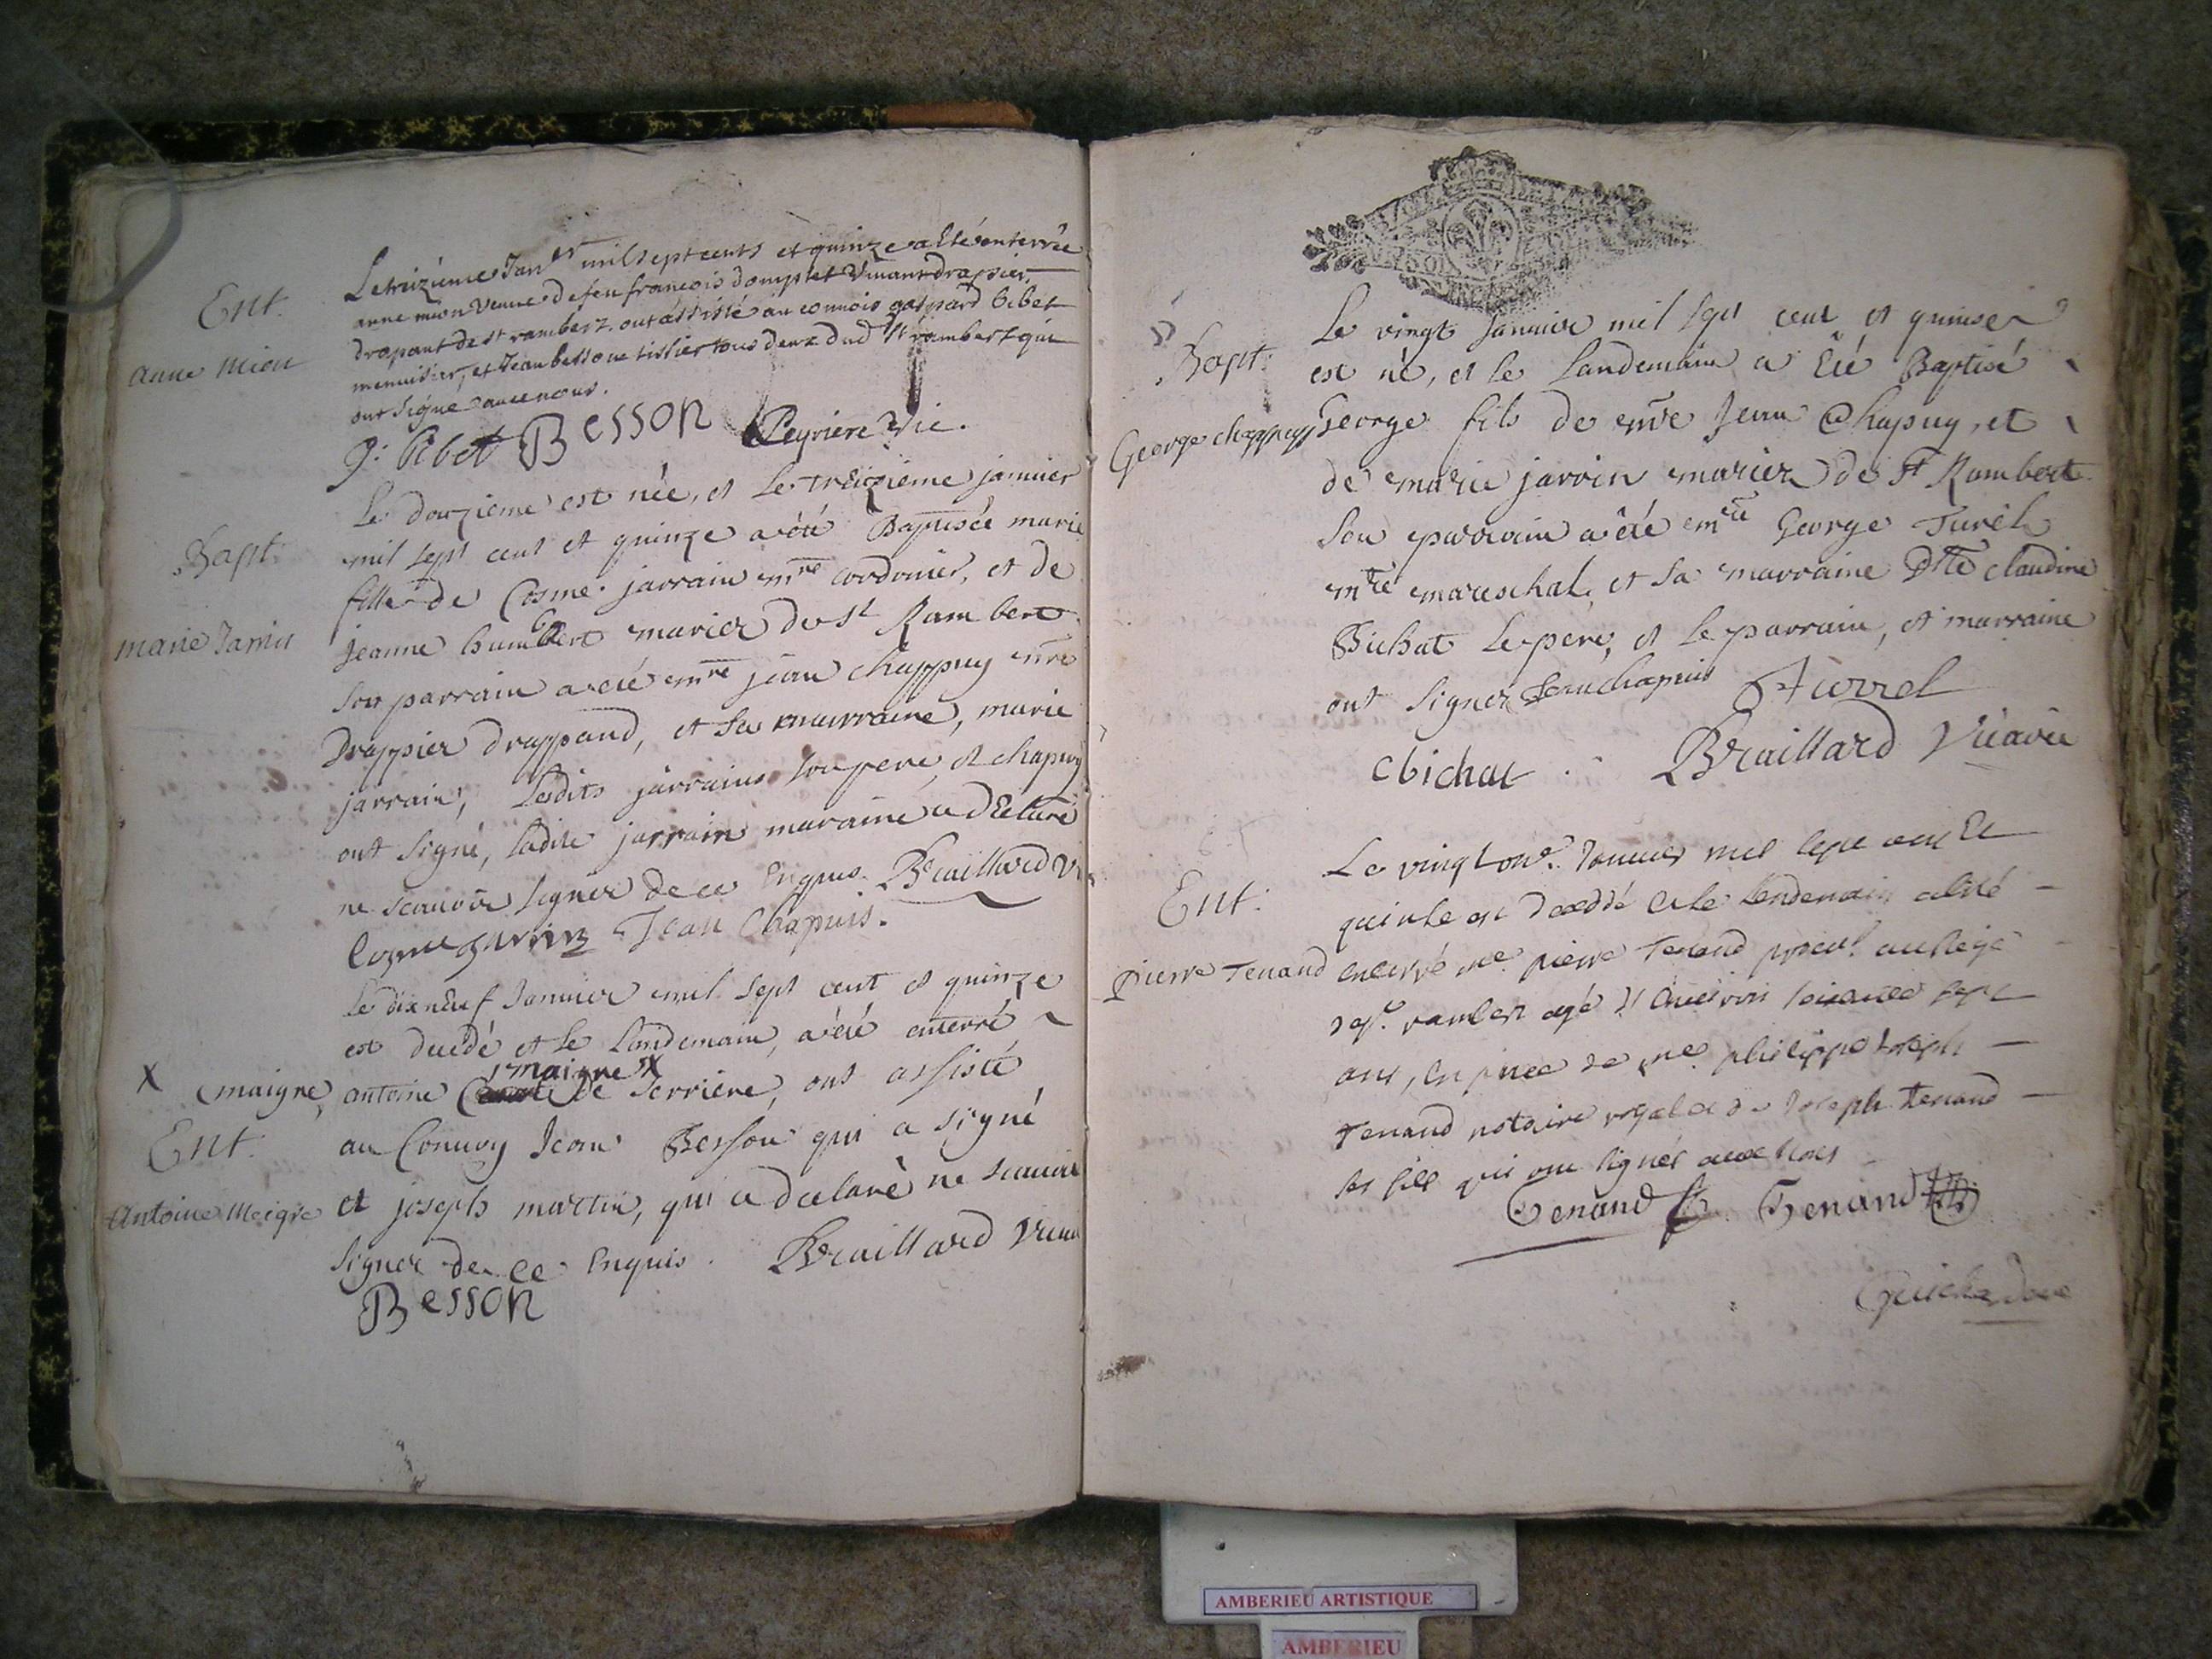 Ent.
anne mion
Le treizieme Janr mil sept cents et quinze a Eté enterrée
anne mion veuve de feu francois domplet vivant drapier
drapant de st rambert. ont assisté au convois gaspard bibet
menuisier, et Jean besson tissier tous deux dud st rambert qui
ont signe avec nous.
g: bibet Besson Peyriere Vic.
Bapt:
marie Jarrin
Le douzieme est née, et le treizieme janvier
mil sept cent et quinze a été Baptisée marie
fille de Cosme jarrain mre cordonier, et de
jeanne humbert mariez de st Rambert
son parrain a été mre jean chappuy mre
Drappier drappand, et sa marraine, marie
jarrain, lesdits jarrains son pere, et chapuy
ont signé, ladite jarrain maraine a declaré
ne scauoir signer de ce Enquis. Braillard V
Cosme Jarrin Jean Chapuis.
x maigre,
Ent.
Antoine Meigre
Le dixneuf Janvier mil sept cent et quinze
est decedé et le landemain, a été enterré
maigre x
antoine de Serriere, ont assisté
au Convoy Jean Besson qui a signé
et joseph martin, qui a declaré ne scauoir
signer de ce Enquis. Braillard Vicai
Besson
Bapt:
George chappuy
Le vingt Janvier mil sept cent et quinse
est né, et le landemain a Eté Baptisé
George fils de mre Jean Chapuy, et
de marie jarrin mariez de St Rambert
son parrain a été mre George Turél
mtre mareschal, et sa marraine Dlle claudine
Bichat le pere, et le parrain, et marraine
ont signez Jean chapuis Turrel
C bichat . Braillard Vicaire
Ent.
pierre Tenand
Le vingt onze Janvier mil sept cent Et
quinse est decedé et le lendemain a Eté
enterré me. pierre Tenand procur.
de st. rambert agé d'Environ soixante sept
ans, en pnce de me. philippe Joseph
Tenand notaire royal et de Joseph tenand
ses fils qui ont signés avec nous
Tenand Tenand fils